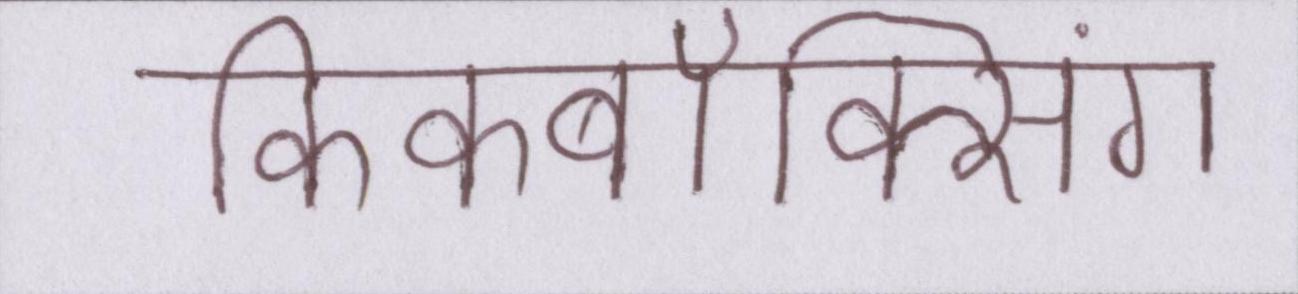 किकबॉक्सिंग